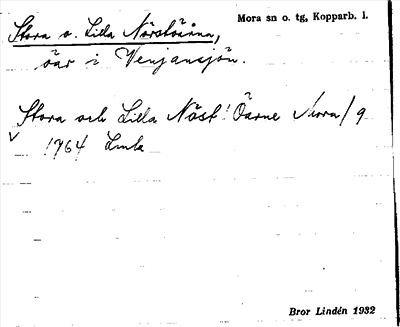 Stora o. Lilla Näsöarna, Mora sn o. tg, Kopparb. l.
öar i Venjansjön.
Stora och Lilla Näset! Öarne /9
1764 Lmk
Bror Lindén 1932